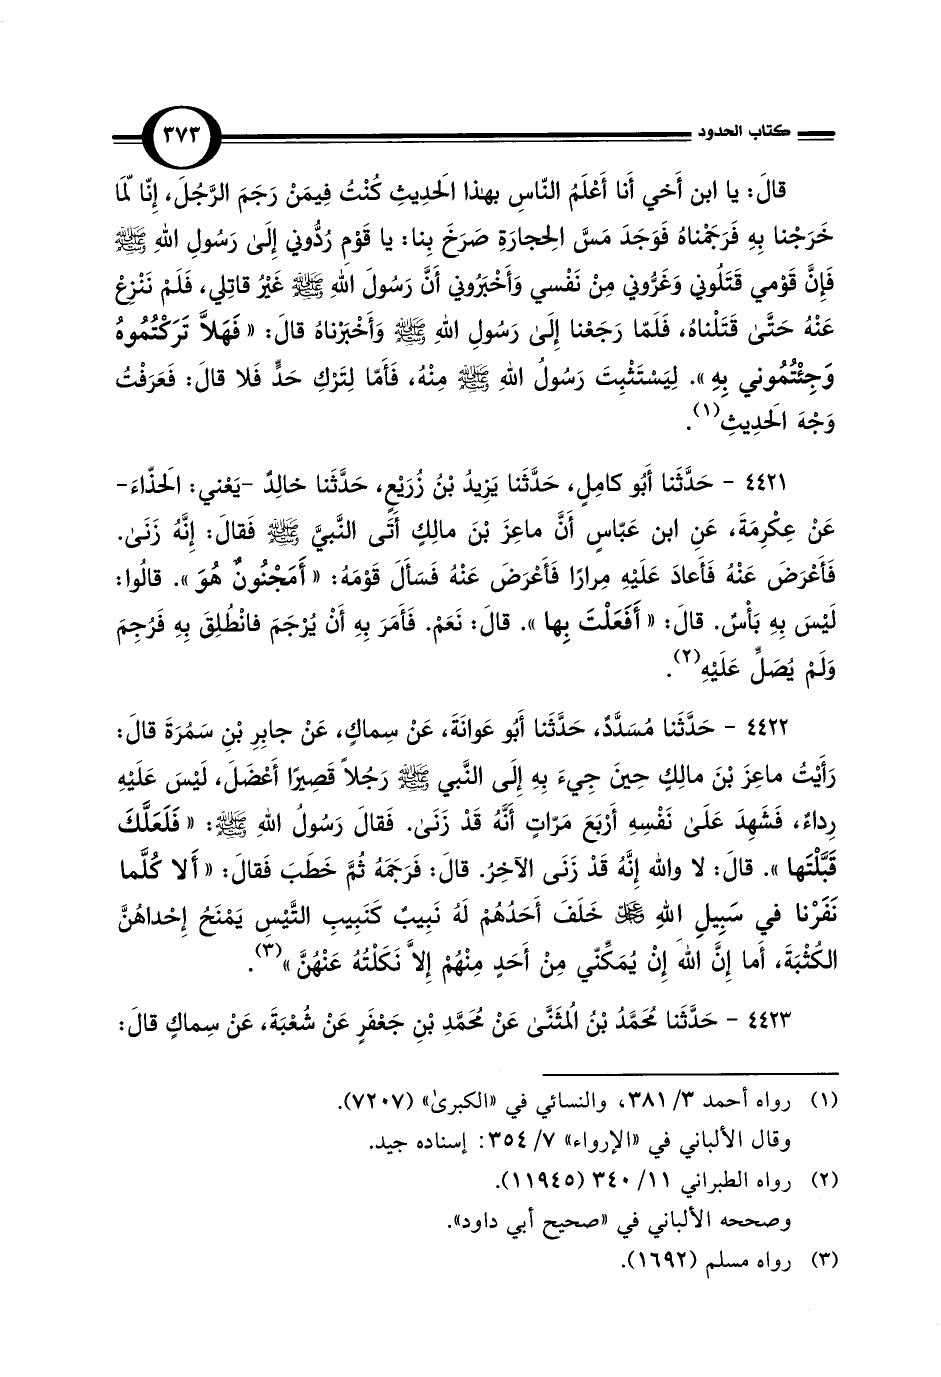 كتاب الحدود ٣٧٣
قالَ: يا ابن أَخي أَنا أَعْلَمُ النّاسِ بهذا الحَدِيثِ كُنْتُ فِيمَنْ رَجَمَ الرَّجُلَ، إِنّا لَمّا
خَرَجْنا بِهِ فَرَجَمْناهُ فَوَجَدَ مَسَّ الِحجارَةِ صَرَخَ بِنا: يا قَوْمِ رُدُّوني إِلَىٰ رَسُولِ اللهِ ﷺ
فَإِنَّ قَوْمي قَتَلُوني وَغَرُّوني مِنْ نَفْسي وَأَخْبَرُوني أَنَّ رَسُولَ اللهِ ﷺ غَيْرُ قاتِلي، فَلَمْ نَنْزِعْ
عَنْهُ حَتَّىٰ قَتَلْناهُ، فَلَمّا رَجَعْنا إِلَىٰ رَسُولِ اللهِ ﷺ وَأَخْبَرْناهُ قالَ: « فَهَلاَّ تَرَكْتُمُوهُ
وَجِئْتُمُوني بِهِ ». لِيَسْتَثْبِتَ رَسُولُ اللهِ ﷺ مِنْهُ، فَأَمّا لِتَرْكِ حَدٍّ فَلا قالَ: فَعَرَفْتُ
وَجْهَ الحَدِيثِ(١).
٤٤٢١ - حَدَّثَنا أَبُو كامِلٍ، حَدَّثَنا يَزِيدُ بْنُ زُرَيْعٍ، حَدَّثَنا خالِدٌ -يَعْني: الحَذّاءَ-
عَنْ عِكْرِمَةَ، عَنِ ابن عَبّاسٍ أَنَّ ماعِزَ بْنَ مالِكٍ أَتَى النَّبيَّ ﷺ فَقالَ: إِنَّهُ زَنَىٰ.
فَأَعْرَضَ عَنْهُ فَأَعادَ عَلَيْهِ مِرارًا فَأَعْرَضَ عَنْهُ فَسَأَلَ قَوْمَهُ: « أَمَجْنُونٌ هُوَ ». قالُوا:
لَيْسَ بِهِ بَأْسٌ. قالَ: « أَفَعَلْتَ بِها ». قالَ: نَعَمْ. فَأَمَرَ بِهِ أَنْ يُرْجَمَ فانْطُلِقَ بِهِ فَرُجِمَ
وَلَمْ يُصَلِّ عَلَيْهِ(٢).
٤٤٢٢ - حَدَّثَنا مُسَدَّدٌ، حَدَّثَنا أَبُو عَوانَةَ، عَنْ سِماكٍ، عَنْ جابِرِ بْنِ سَمُرَةَ قالَ:
رَأَيْتُ ماعِزَ بْنَ مالِكٍ حِينَ جِيءَ بِهِ إِلَى النَّبي ﷺ رَجُلاً قَصِيرًا أَعْضَلَ، لَيْسَ عَلَيْهِ
رِداءٌ، فَشَهِدَ عَلَىٰ نَفْسِهِ أَرْبَعَ مَرّاتٍ أَنَّهُ قَدْ زَنَىٰ. فَقالَ رَسُولُ اللهِ ﷺ: « فَلَعَلَّكَ
قَبَّلْتَها ». قالَ: لا والله إِنَّهُ قَدْ زَنَى الآخِرُ. قالَ: فَرَجَمَهُ ثُمَّ خَطَبَ فَقالَ: « أَلا كُلَّما
نَفَرْنا في سَبِيلِ اللهِ ﷻ خَلَفَ أَحَدُهُمْ لَهُ نَبِيبٌ كَنَبِيبِ التَّيْسِ يَمْنَحُ إِحْداهُنَّ
الكُثْبَةَ، أَما إِنَّ اللهَ إِنْ يُمَكِّنّي مِنْ أَحَدٍ مِنْهُمْ إِلاَّ نَكَلْتُهُ عَنْهُنَّ »(٣).
٤٤٢٣ - حَدَّثَنا مُحَمَّدُ بْنُ المُثَنَّىٰ عَنْ مُحَمَّدِ بْنِ جَعْفَرٍ عَنْ شُعْبَةَ، عَنْ سِماكٍ قالَ:
(١) رواه أحمد ٣/ ٣٨١، والنسائي في «الكبرىٰ» (٧٢٠٧).
وقال الألباني في «الإرواء» ٧/ ٣٥٤: إسناده جيد.
(٢) رواه الطبراني ١١/ ٣٤٠ (١١٩٤٥).
وصححه الألباني في «صحيح أبي داود».
(٣) رواه مسلم (١٦٩٢).